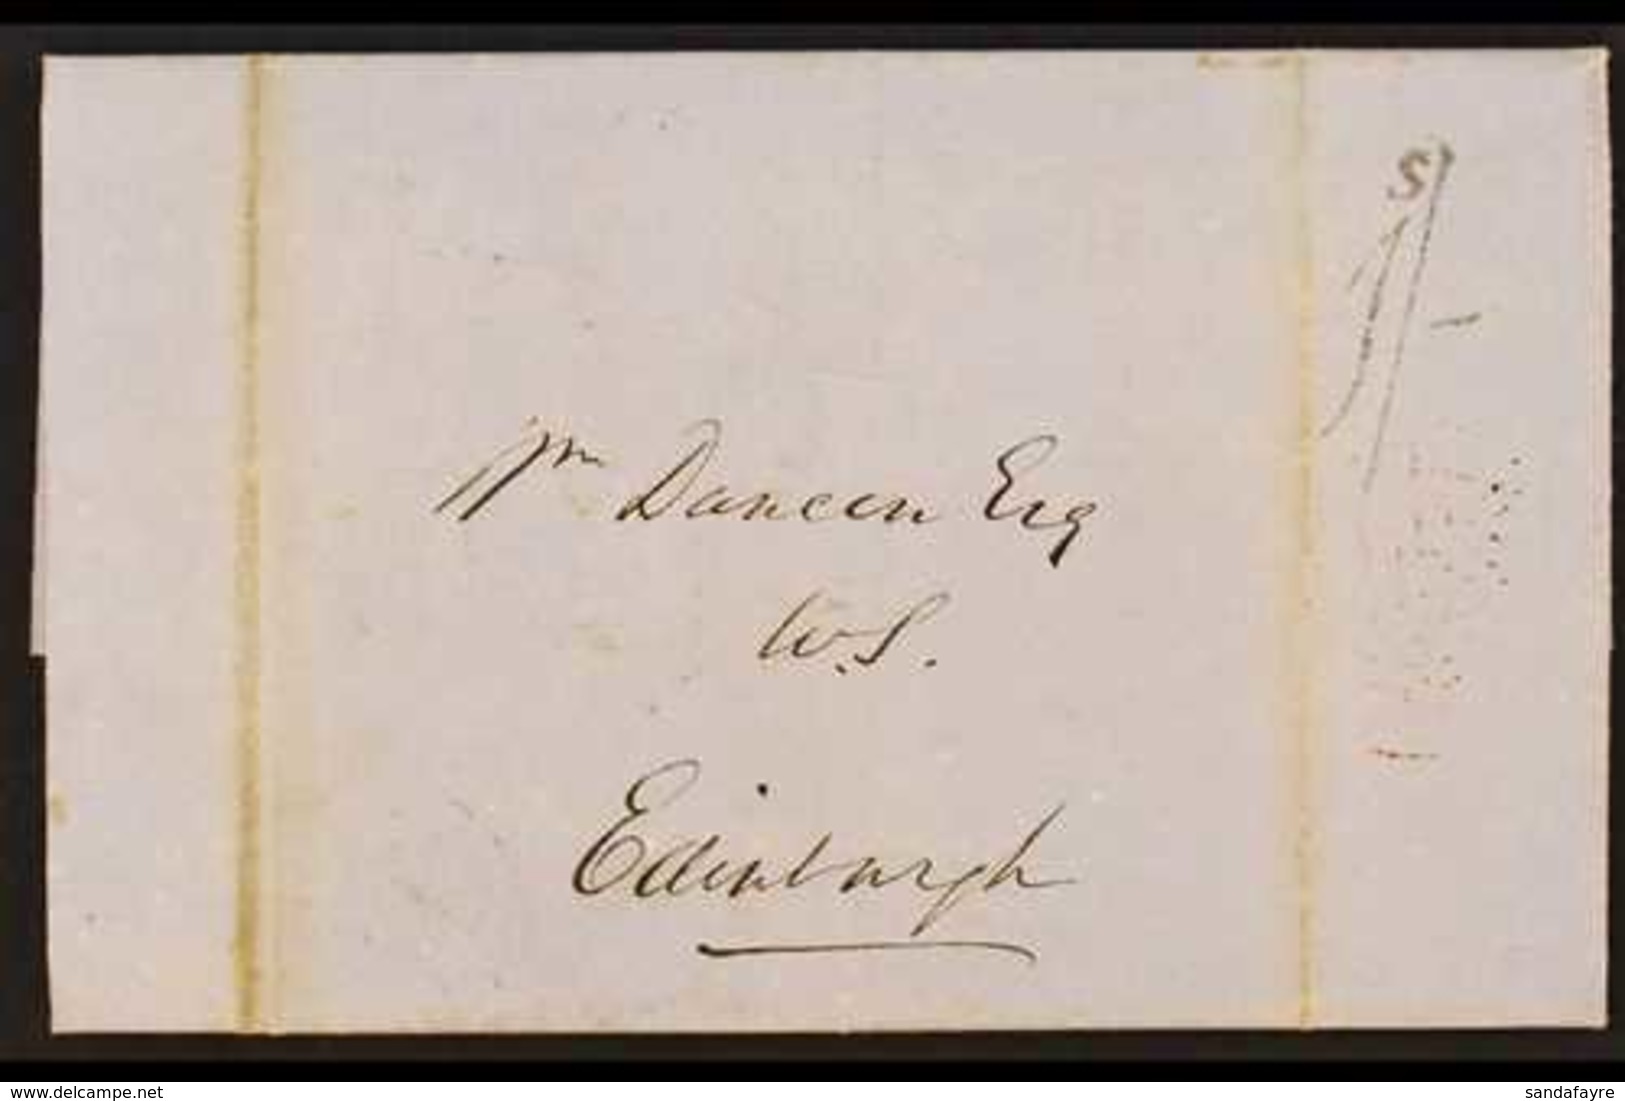 S
Wm Duncan Esq
W.S.
Edinburgh
www.delcampe.net
sandafayre